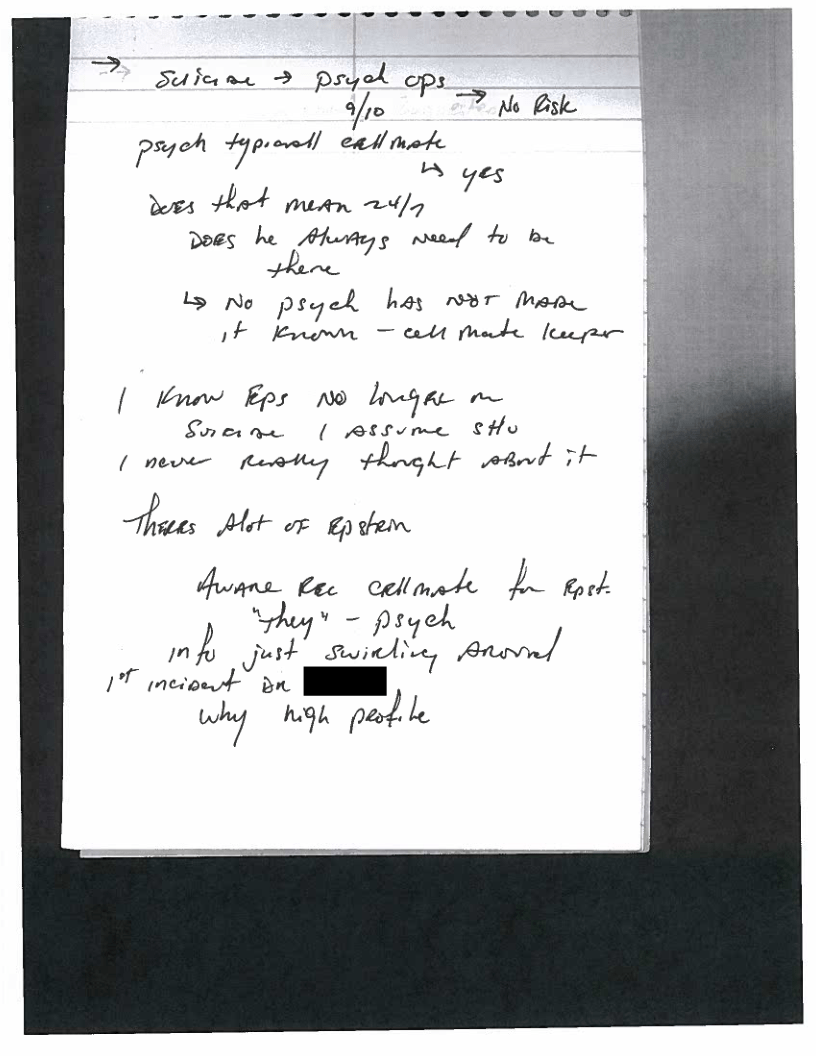 → Suicide → psych ops
9/10 → No Risk
psych typicall cellmate
↳ yes
Does that mean 24/7
Does he Always need to be
there
↳ No psych has NOT MADE
it Known - cell mate keeper
I Know Eps NO longer on
Suicide I Assume SHU
I never Really thought About it
Theres Alot of Epstein
Aware Rec cellmate for Epst.
"they" - psych
info just swirling Around
1st incident
why high profile